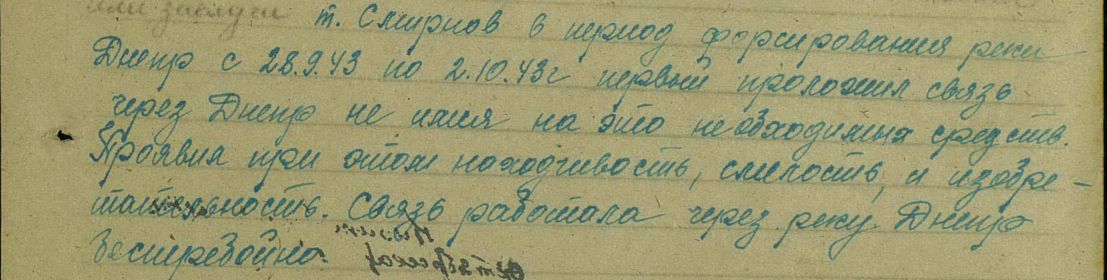 или заслуги т. Смирнов в период форсирования реки
Днепр с 28.9.43 по 2.10.43г первый проложил связь
через Днепр не имея на это необходимых средств.
Проявил при этом находчивость, смелость, и изобре-
тательность. Связь работала через реку Днепр
бесперебойно